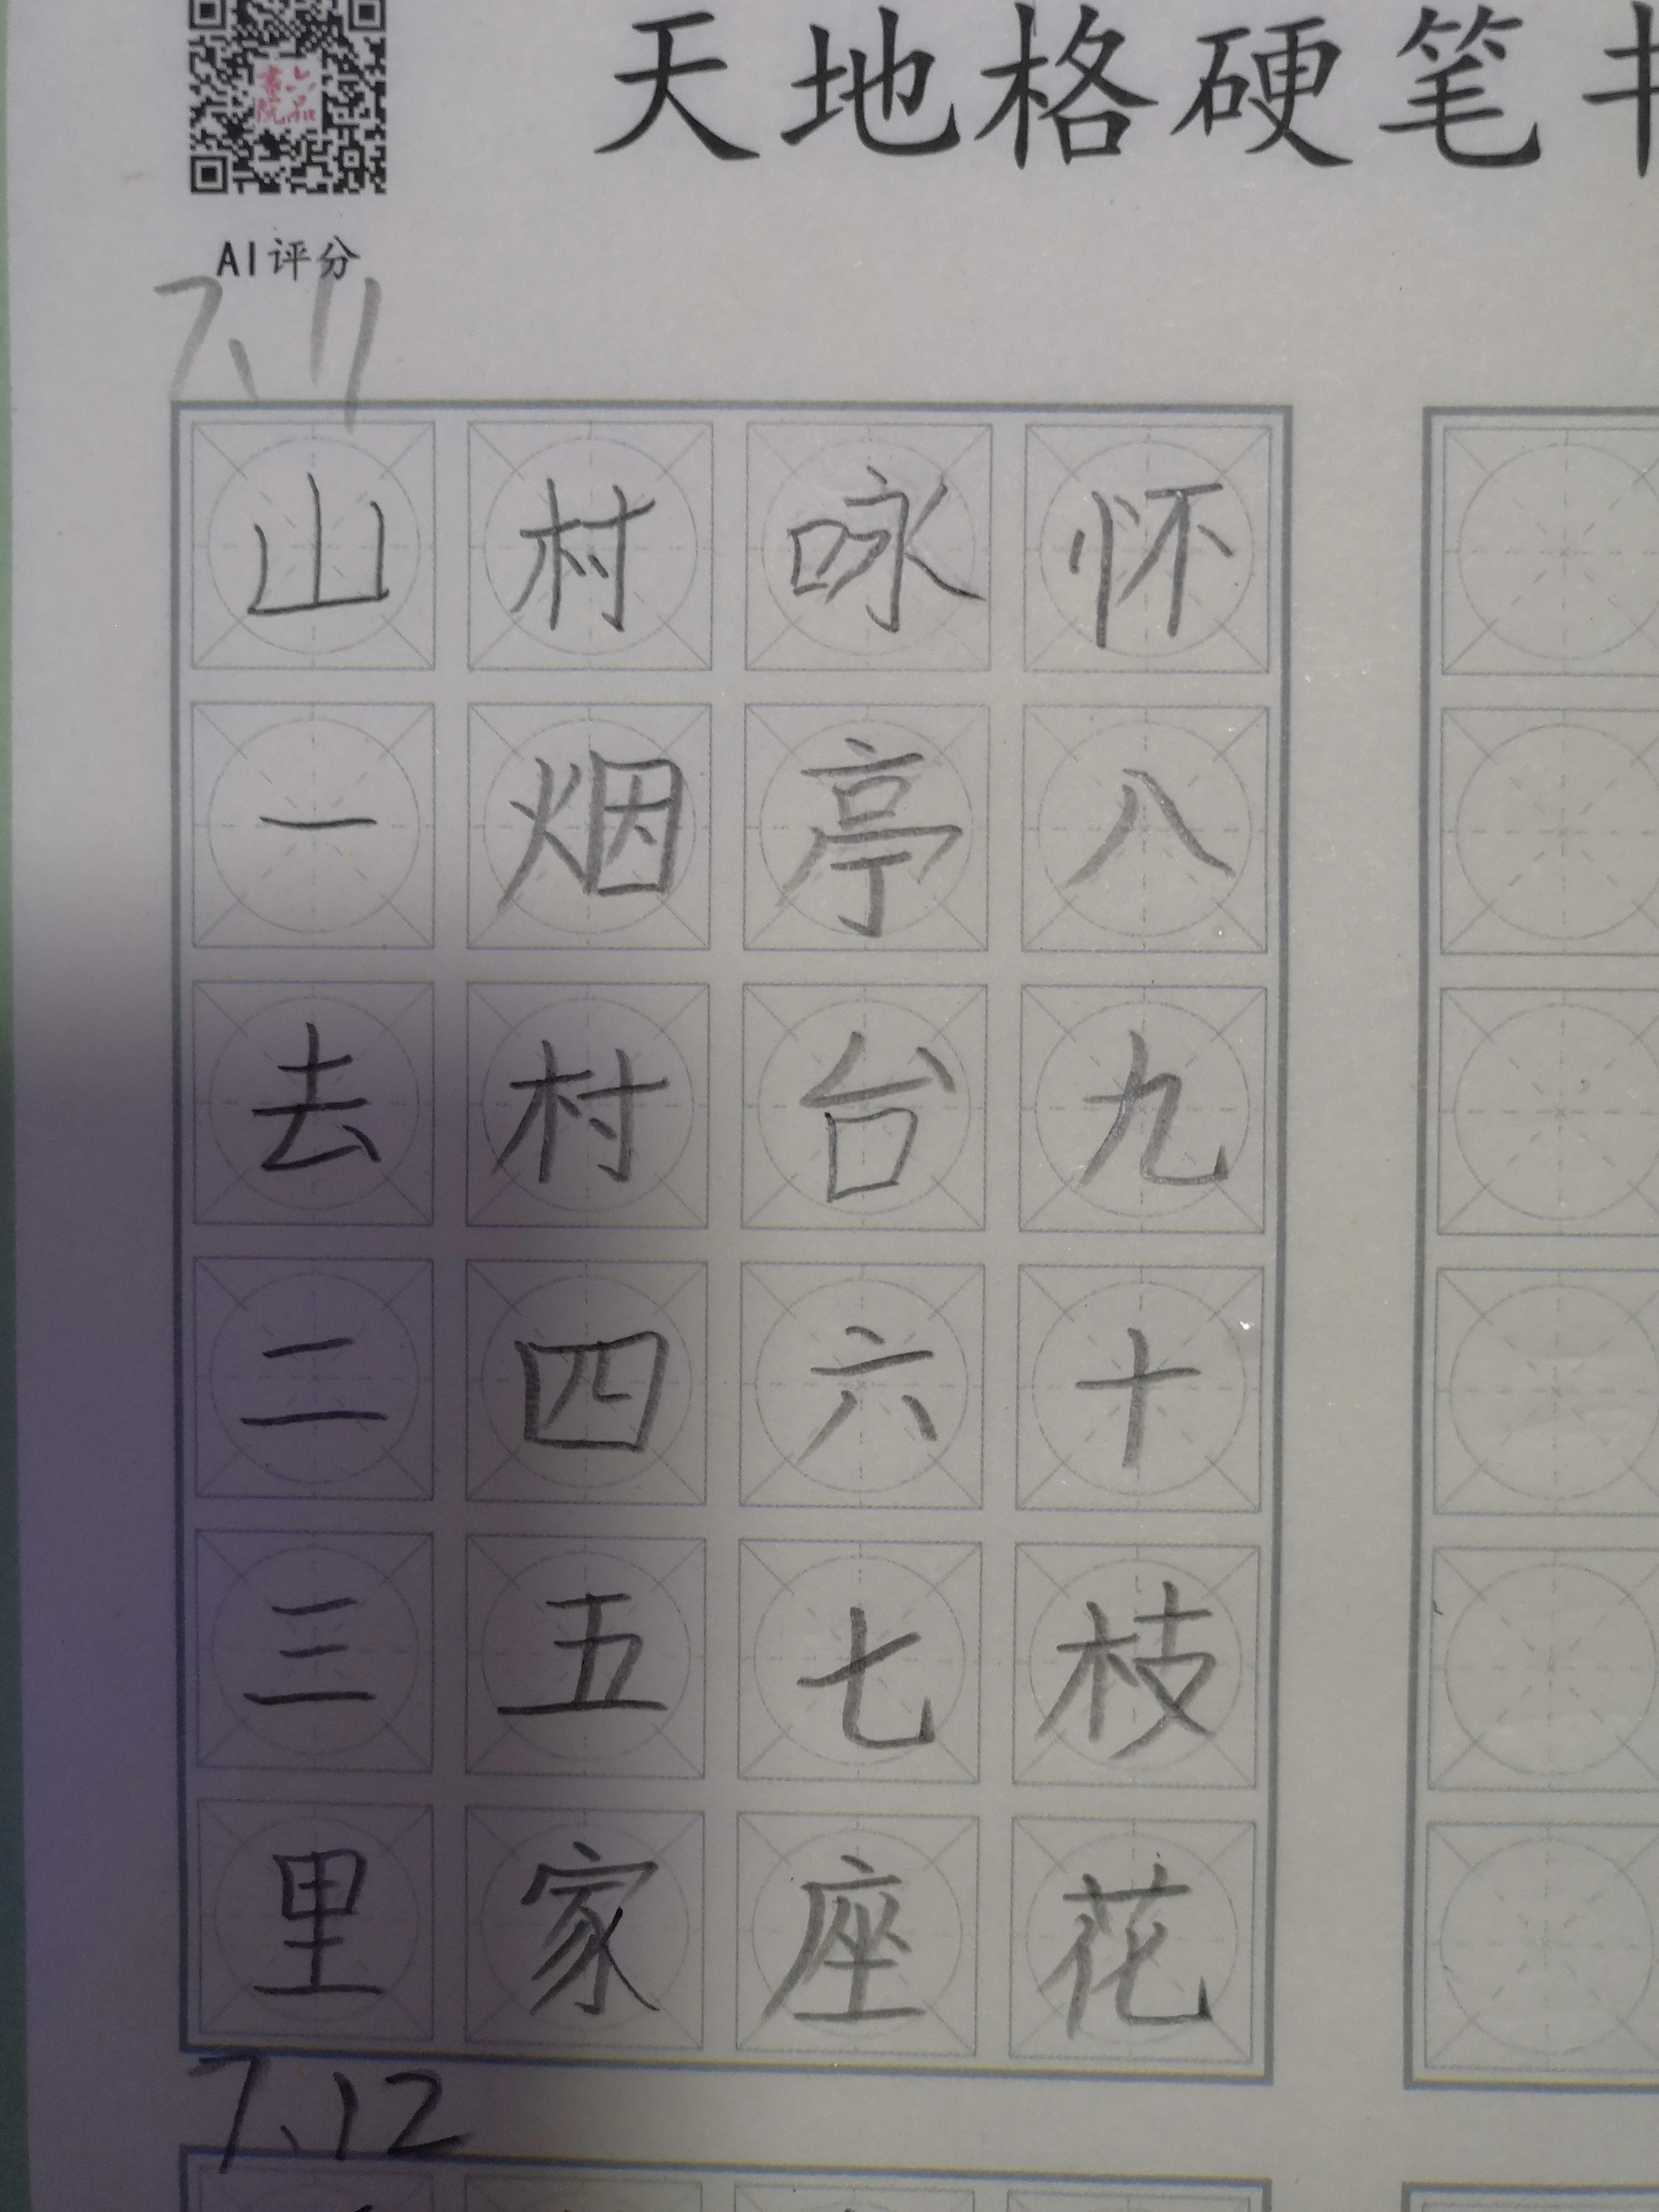 天地格硬笔
書院
六品
AI评分
7、11
山村咏怀
一烟亭八
去村台九
二四六十
三五七枝
里家座花
7、12